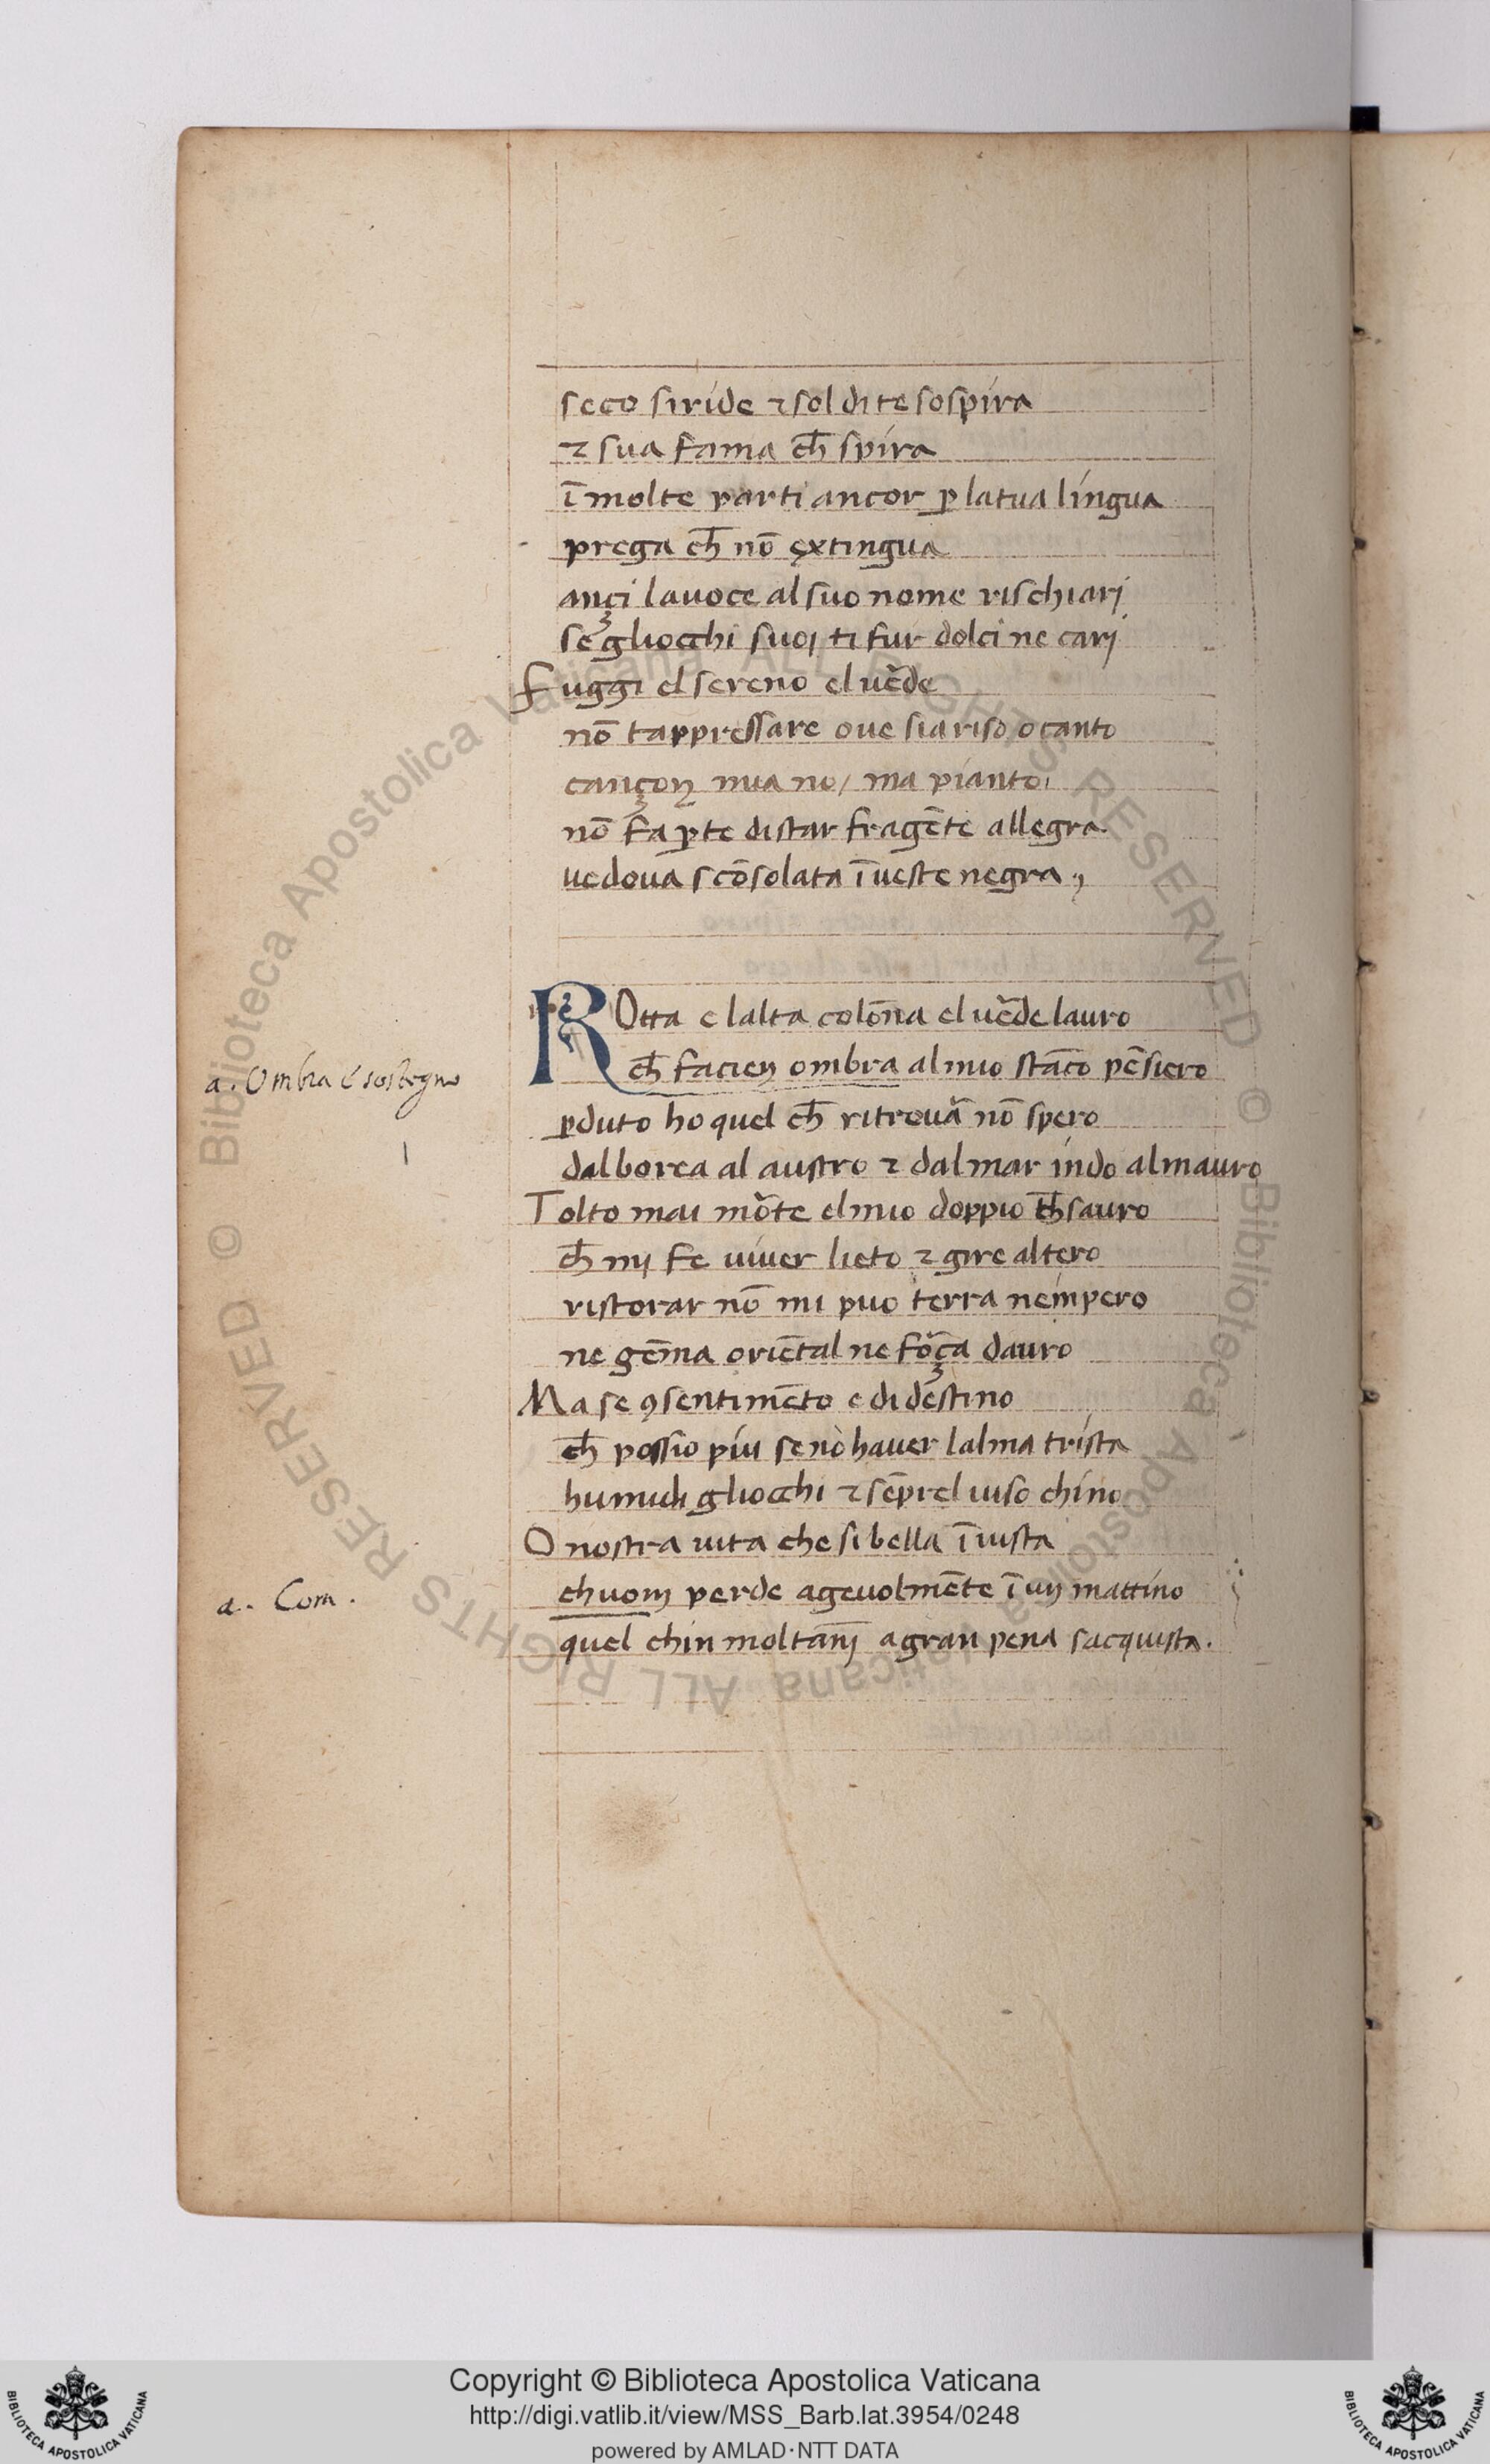 seco si ride ⁊ sol di te sospira
⁊ sua fama ch̄ spira
ī molte parti ancor ꝑ la tua lingua
prega ch̄ nō extingua
ançi la uoce al suo nome rischiarj
se gliocchi suoj ti fur dolci ne carj
Fuggi el sereno el uẽde
nō tappressare oue sia riso o canto
cançon mia no / ma pianto
nō fa ꝑte distar fra gēte allegra
uedoua scōsolata ī ueste negra,
ROtta e lalta colōna el uẽde lauro
ch̄ facien ombra al mio stāco pēsiero
a. Ombra e sostegno
ꝑduto ho quel ch̄ ritrouã nō spero
dal borea al austro ⁊ dal mar indo al mauro
Tolto mai mõte el mio doppio th̄sauro
ch̄ mj fe uiuer lieto ⁊ gire altero
ristorar nō mi puo terra nempero
ne gēma oriētal ne fõça dauro
Ma se ꝯsentimēto e di destino
ch̄ possio piu se nò hauer lalma trista
humidi gliocchi ⁊ sēprel uiso chino
O nostra uita che si bella ī uista
ch uom perde ageuolmēte ī un mattino
a. Com.
quel chin moltānj a gran pena sacquista.
Copyright © Biblioteca Apostolica Vaticana
http://digi.vatlib.it/view/MSS_Barb.lat.3954/0248
powered by AMLAD·NTT DATA
BIBLIOTECA APOSTOLICA VATICANA
BIBLIOTECA APOSTOLICA VATICANA
© Biblioteca Apostolica Vaticana ALL RIGHTS RESERVED
© Biblioteca Apostolica Vaticana ALL RIGHTS RESERVED